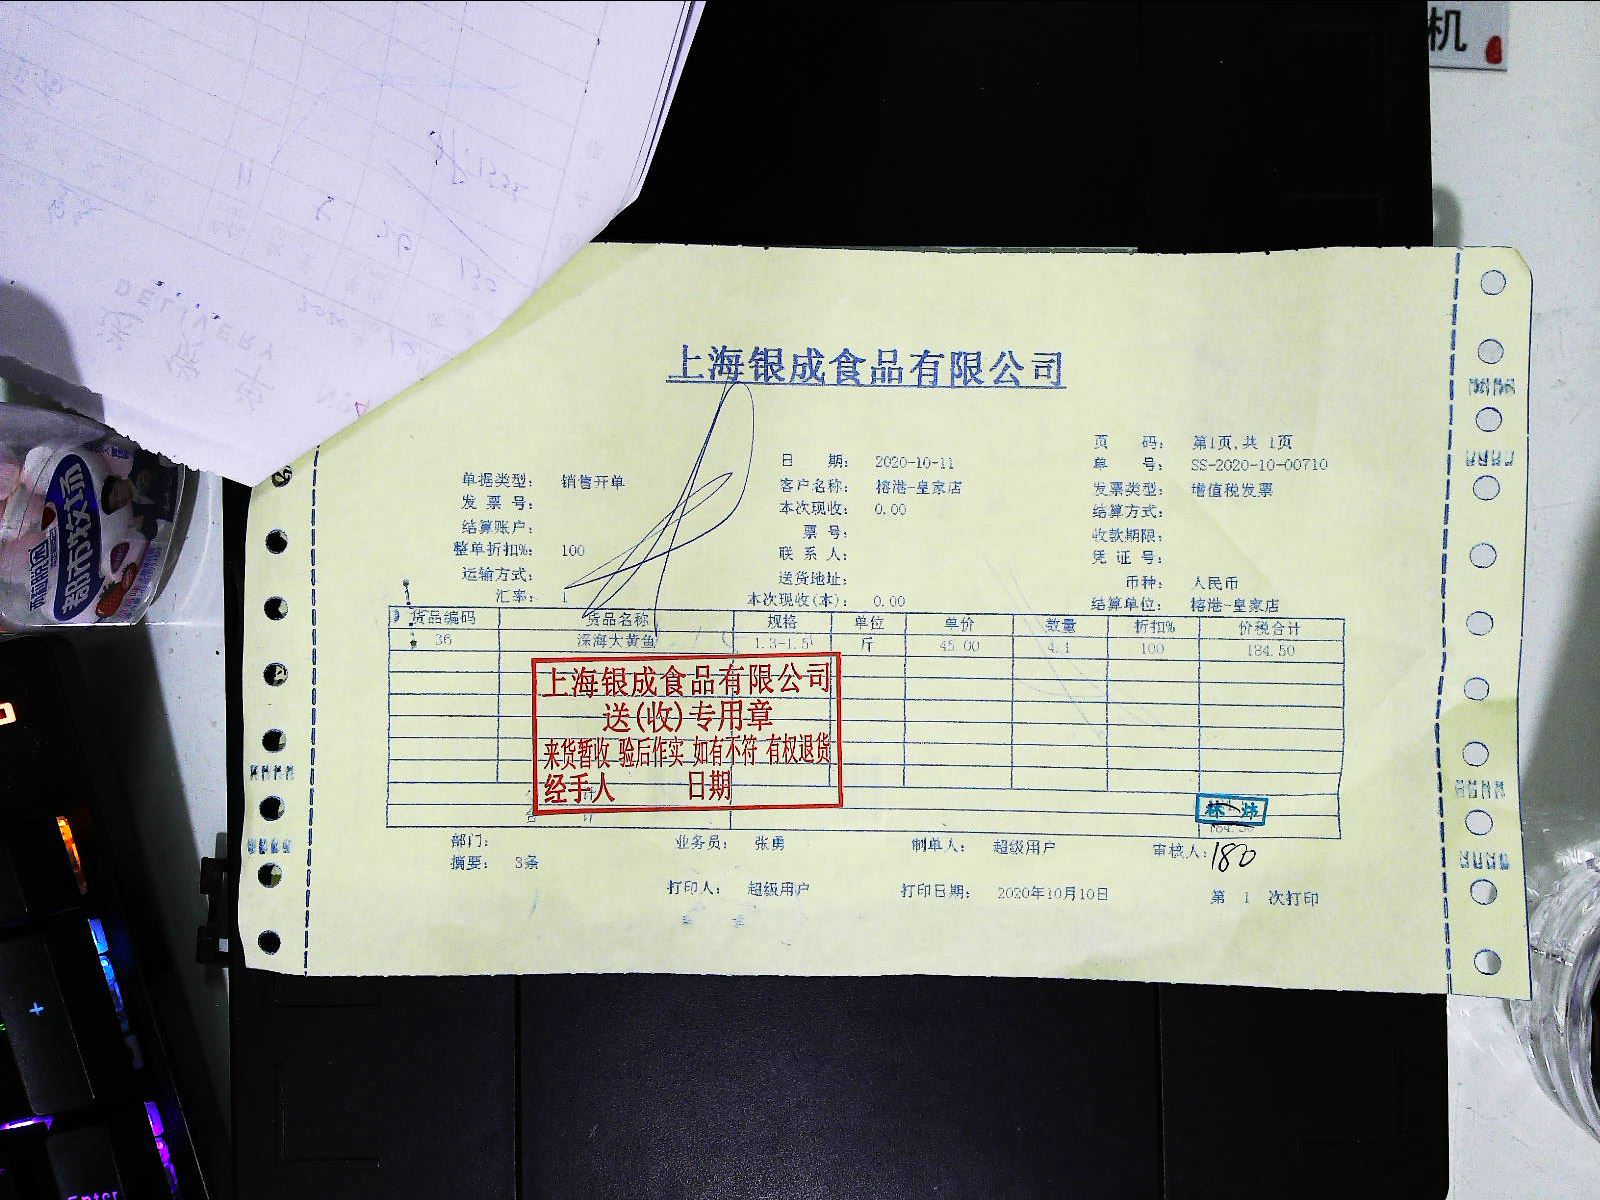 机
DELIVERY
上海银成食品有限公司
页 码： 第1页,共 1页
日 期： 2020-10-11
单 号： SS-2020-10-00710
单据类型： 销售开单
客户名称： 榕港-皇家店
发票类型： 增值税发票
发 票 号：
本次现收： 0.00
结算方式：
结算账户：
票 号：
收款期限：
整单折扣%： 100
联 系 人：
凭 证 号：
运输方式：
送货地址：
币种： 人民币
汇率： 1
本次现收(本)： 0.00
结算单位： 榕港-皇家店
货品编码 货品名称 规格 单位 单价 数量 折扣% 价税合计
36 深海大黄鱼 1.3-1.5 斤 45.00 4.1 100 184.50
上海银成食品有限公司
送(收)专用章
来货暂收 验后作实 如有不符 有权退货
经手人 日期
计
184.50
部门： 业务员： 张勇 制单人： 超级用户 审核人： 180
摘要： 3条
打印人： 超级用户 打印日期： 2020年10月10日 第 1 次打印
都市牧场
Enter